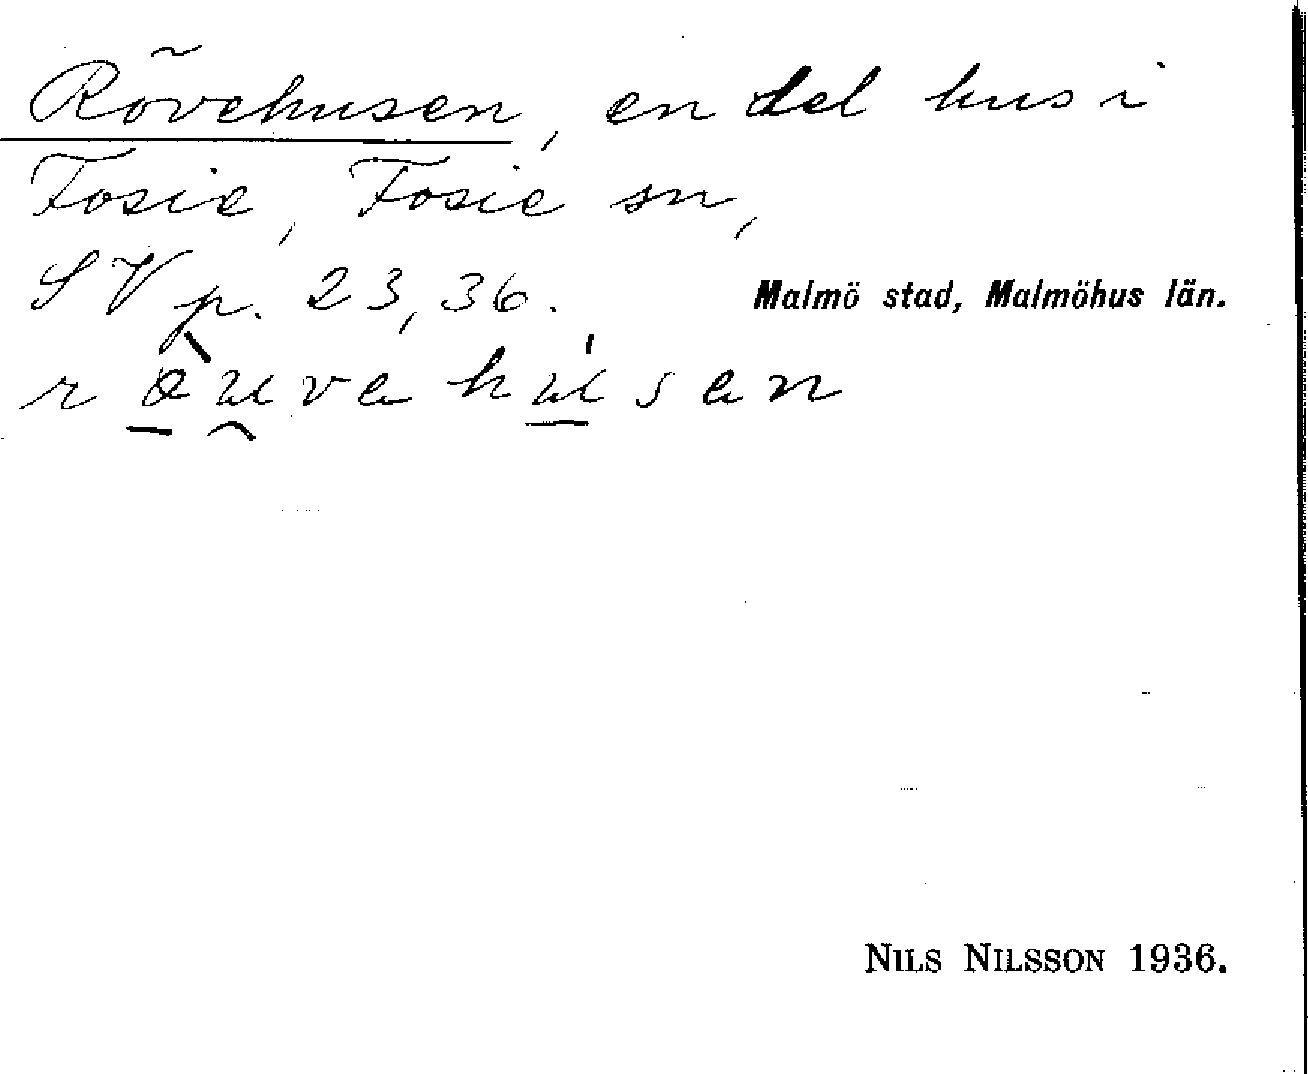 Rövehusen, en del hus i
Fosie, Fosie sn,
SV p. 23, 36. Malmö stad, Malmöhus län.
NILS NILSSON 1936.